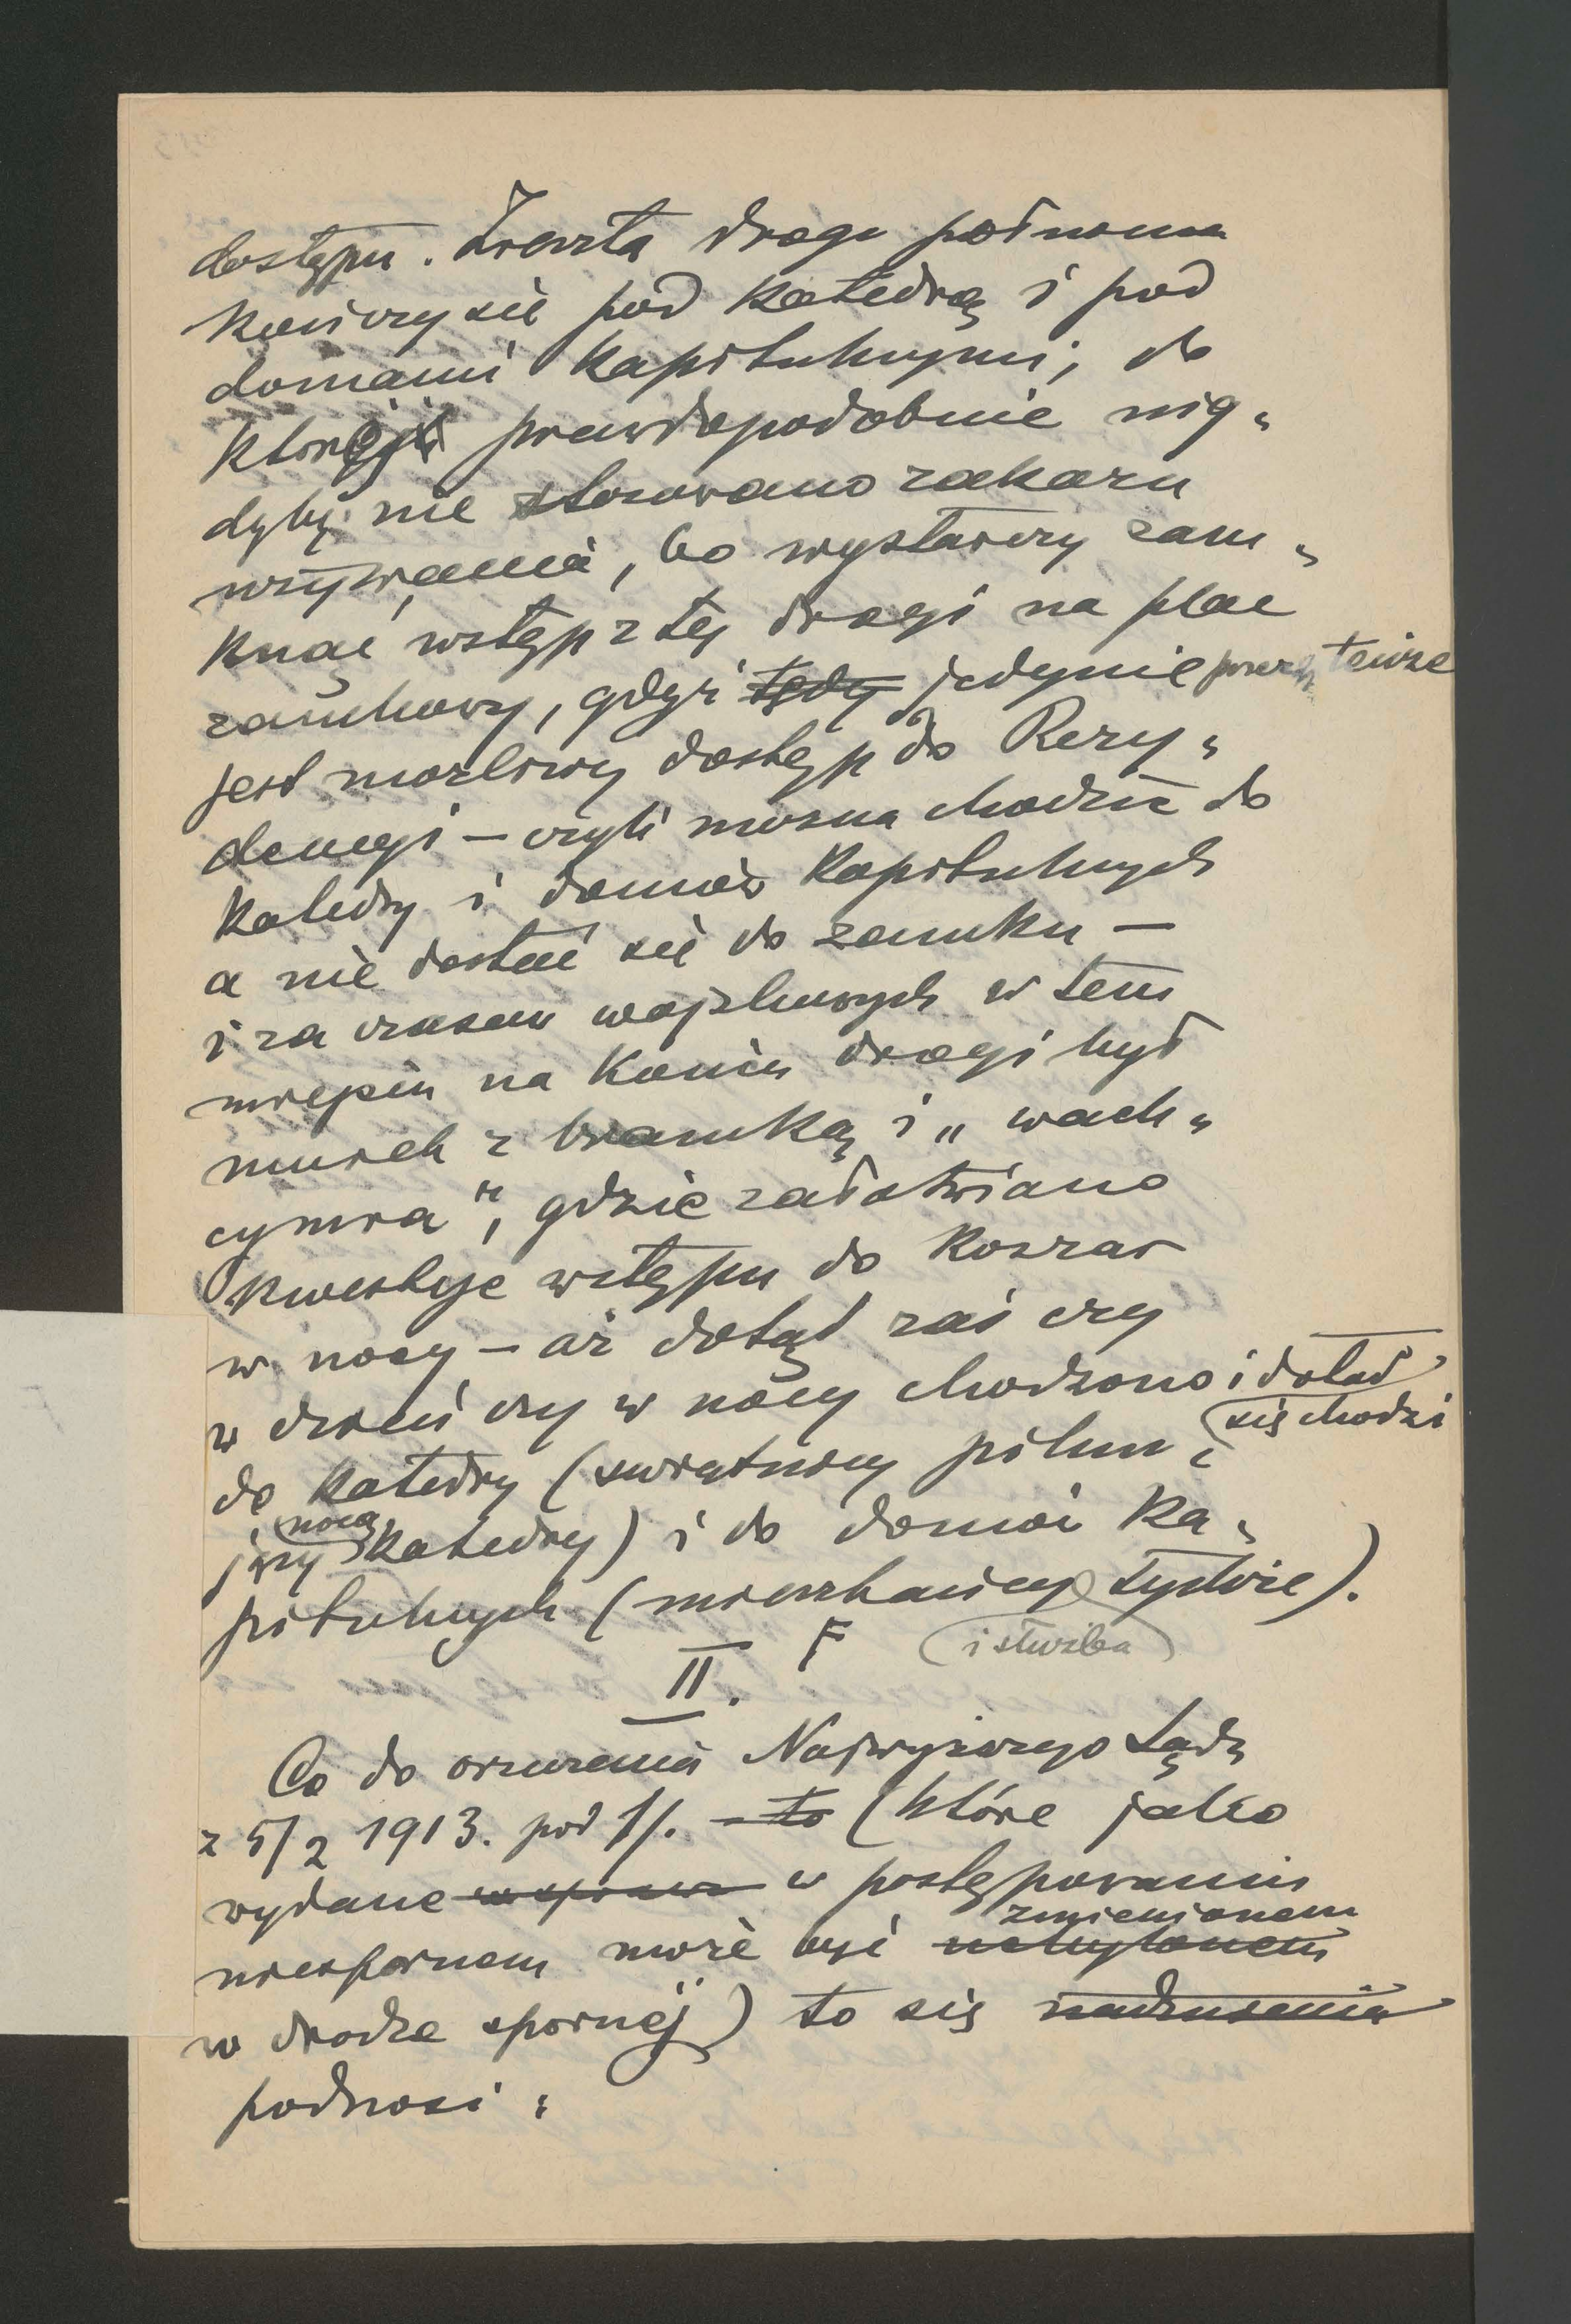 dostępu. Zresztą droga północna
kończy się pod katedrą i pod
domami kapitulnymi, do
której prawdopodobnie nig„
dyby nie stosowano zakazu
używania, bo wystarczy zam„
knąć wstęp z tej drogi na plac
zamkowy, gdyż tędy jedynie przez tenże
jest możliwy dostęp do Rezy„
dencyi – czyli można chodzić do
katedry i domów kapitulnych
a nie dostać się do zamku –
i za czasów wojskowych w tem
miejscu na końcu drogi był
murek z bramką i „wach„
cymra", gdzie załatwiano
kwestye wstępu do koszar
w nocy – aż dotąd zaś czy
w dzień czy w nocy chodzono i dotąd
się chodzi
do katedry (świątnicy pilnu„
ją nocą katedry) i do domów ka„
pitulnych (mieszkańcy tychże).
i służba
II.
Co do orzeczenia Najwyższego Sądu
z 5/2 1913. pod 1/. – to (które jako
wydane w sprawie w postępowaniu
zmienionem
niespornem może być uchylonem
w drodze spornej) to się
podnosi: